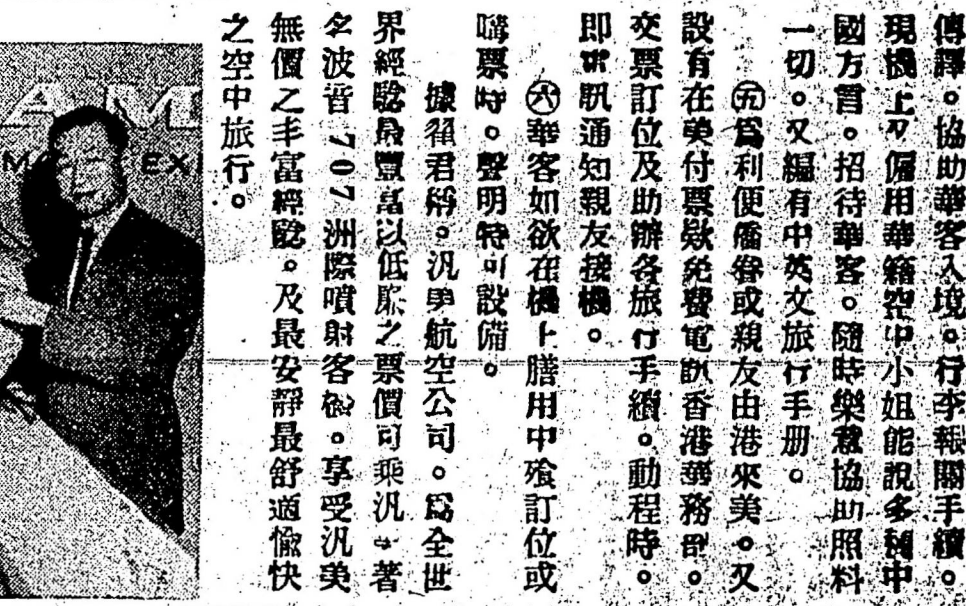 傳譯。協助華客入境。行李報關手續。
現機上又僱用華籍空中小姐能說多種中
國方言。招待華客。隨時樂意協助照料
一切。又編有中英文旅行手册。
㊄爲利便僑眷或親友由港來美。又
設有在美付票欵免費電訊香港華務部。
交票訂位及助辦各旅行手續。動程時。
即電訊通知親友接機。
㊅華客如欲在機上膳用中飱訂位或
購票時。聲明特可設備。
據翟君稱。汎美航空公司。爲全世
界經驗最豐富以低廉之票價可乘汎美著
名波音707洲際噴射客機。享受汎美
無價之丰富經驗。及最安靜最舒適愉快
之空中旅行。
AM
EX